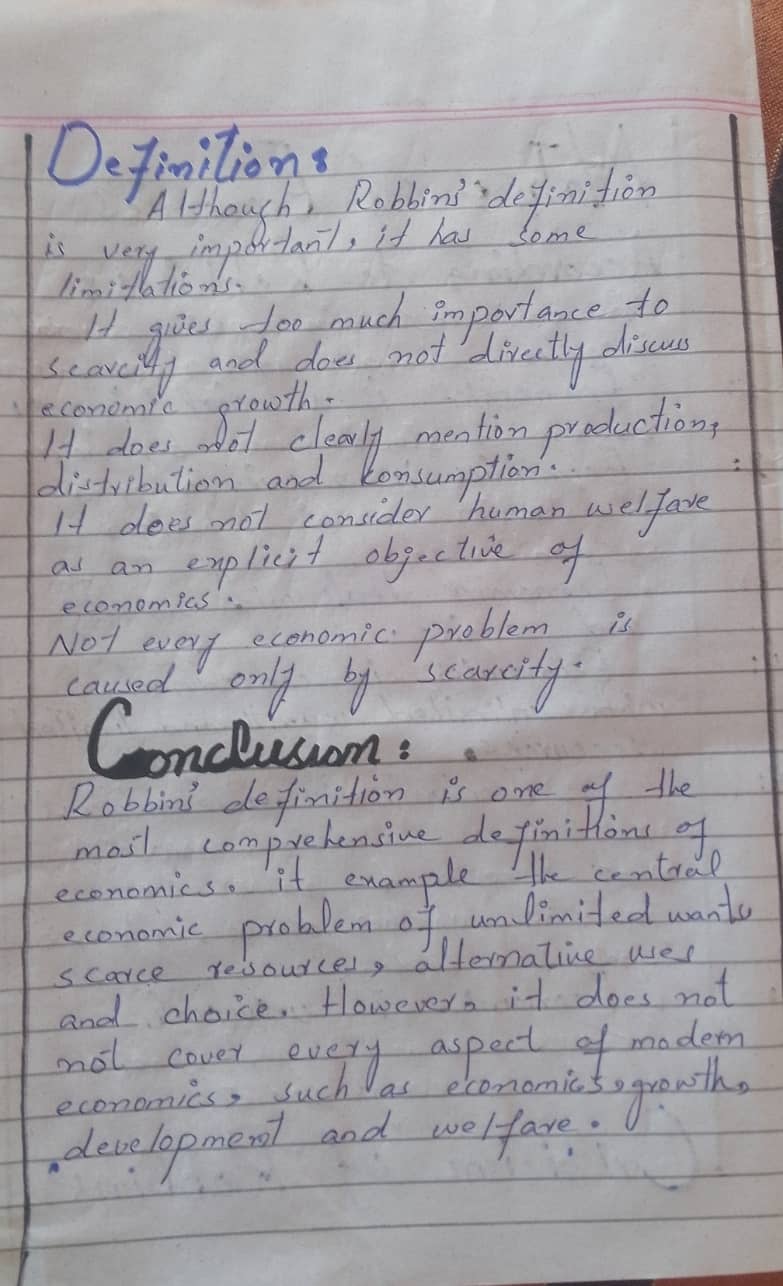 Definition:
Although, Robbins' definition
is very important, it has some
limitations.
It gives too much importance to
scarcity and does not directly discuss
economic growth.
It does not clearly mention production,
distribution and konsumption.
It does not consider human welfare
as an explicit objective of
economics.
Not every economic problem is
caused only by scarcity.
Conclusion:
Robbins' definition is one of the
most comprehensive definitions of
economics. it example the central
economic problem of unlimited wants
scarce resources, alternative uses
and choice. However, it does not
not cover every aspect of modern
economics, such as economics, growth,
development and welfare.